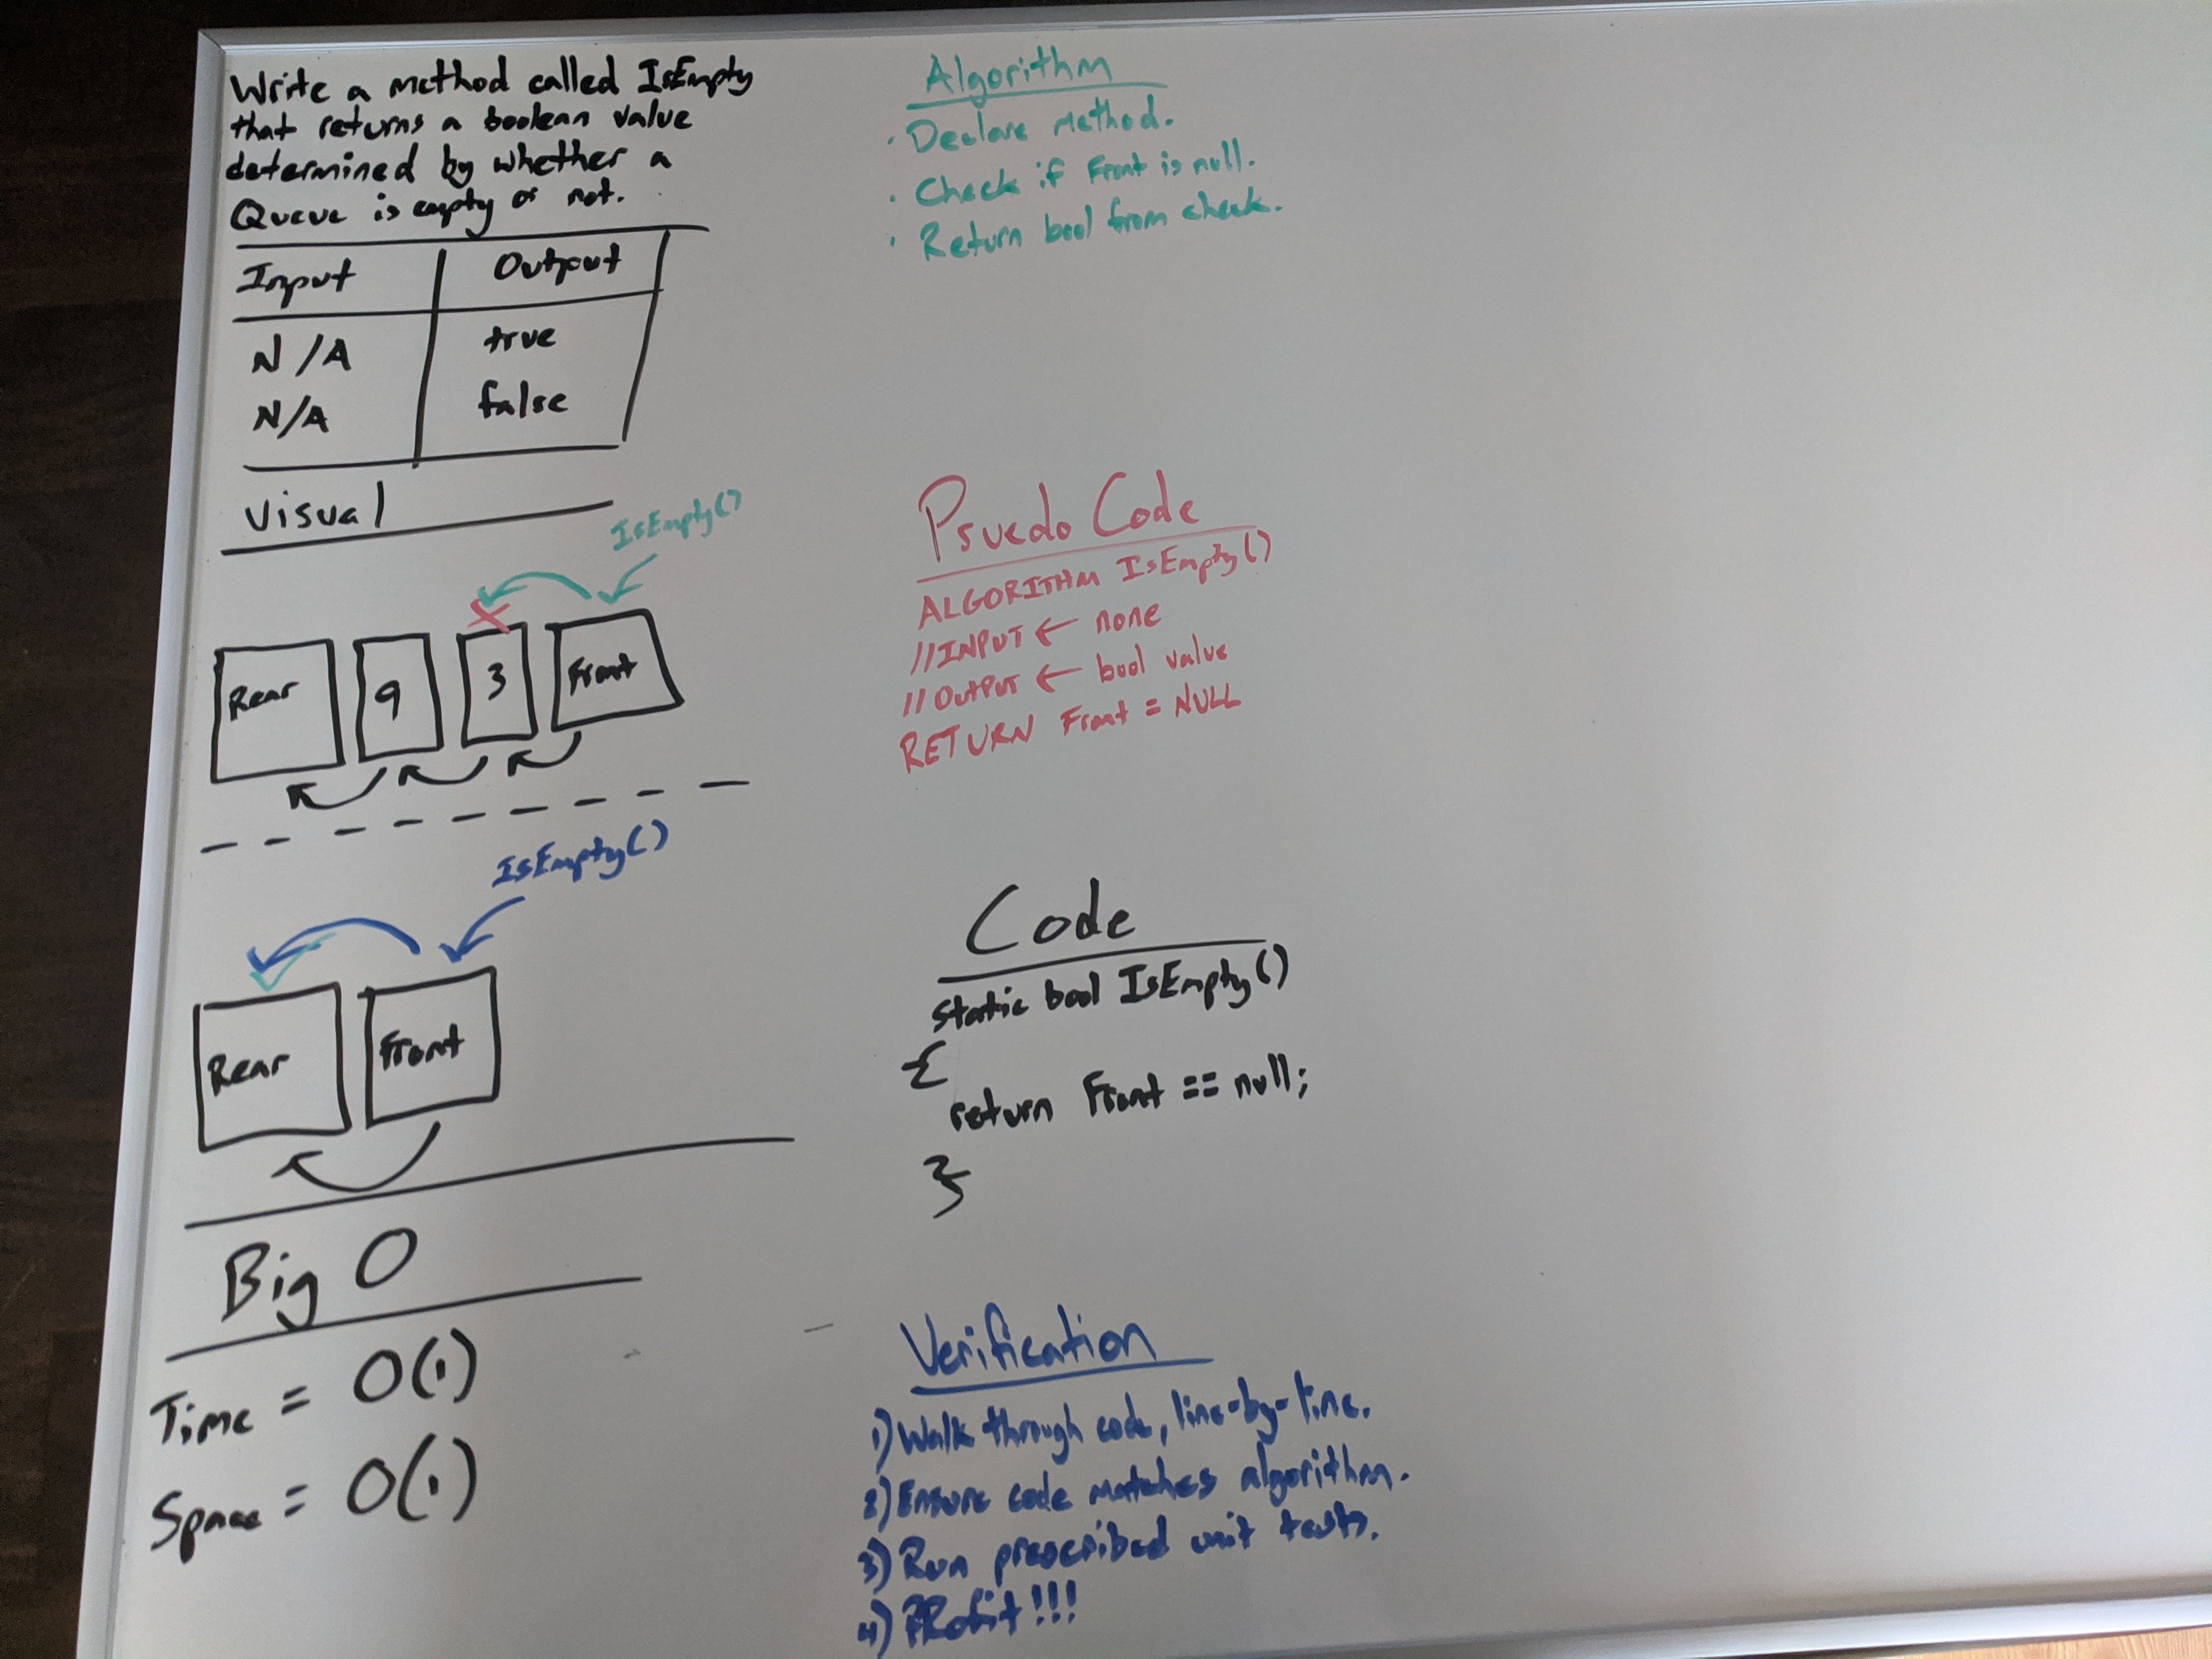 Write a method called IsEmpty
that returns a boolean value
determined by whether a
Queue is empty or not.
Input Output
N/A true
N/A false
Visual
IsEmpty()
Rear 9 3 Front
IsEmpty()
Rear Front
Big O
Time = O(1)
Space = O(1)
Algorithm
· Declare Method.
· Check if Front is null.
· Return bool from check.
Psuedo Code
ALGORITHM IsEmpty()
//INPUT ← none
//OUTPUT ← bool value
RETURN Front = NULL
Code
static bool IsEmpty()
{
return Front == null;
}
Verification
1) Walk through code, line-by-line.
2) Ensure code matches algorithm.
3) Run prescribed unit tests.
4) PRofit!!!